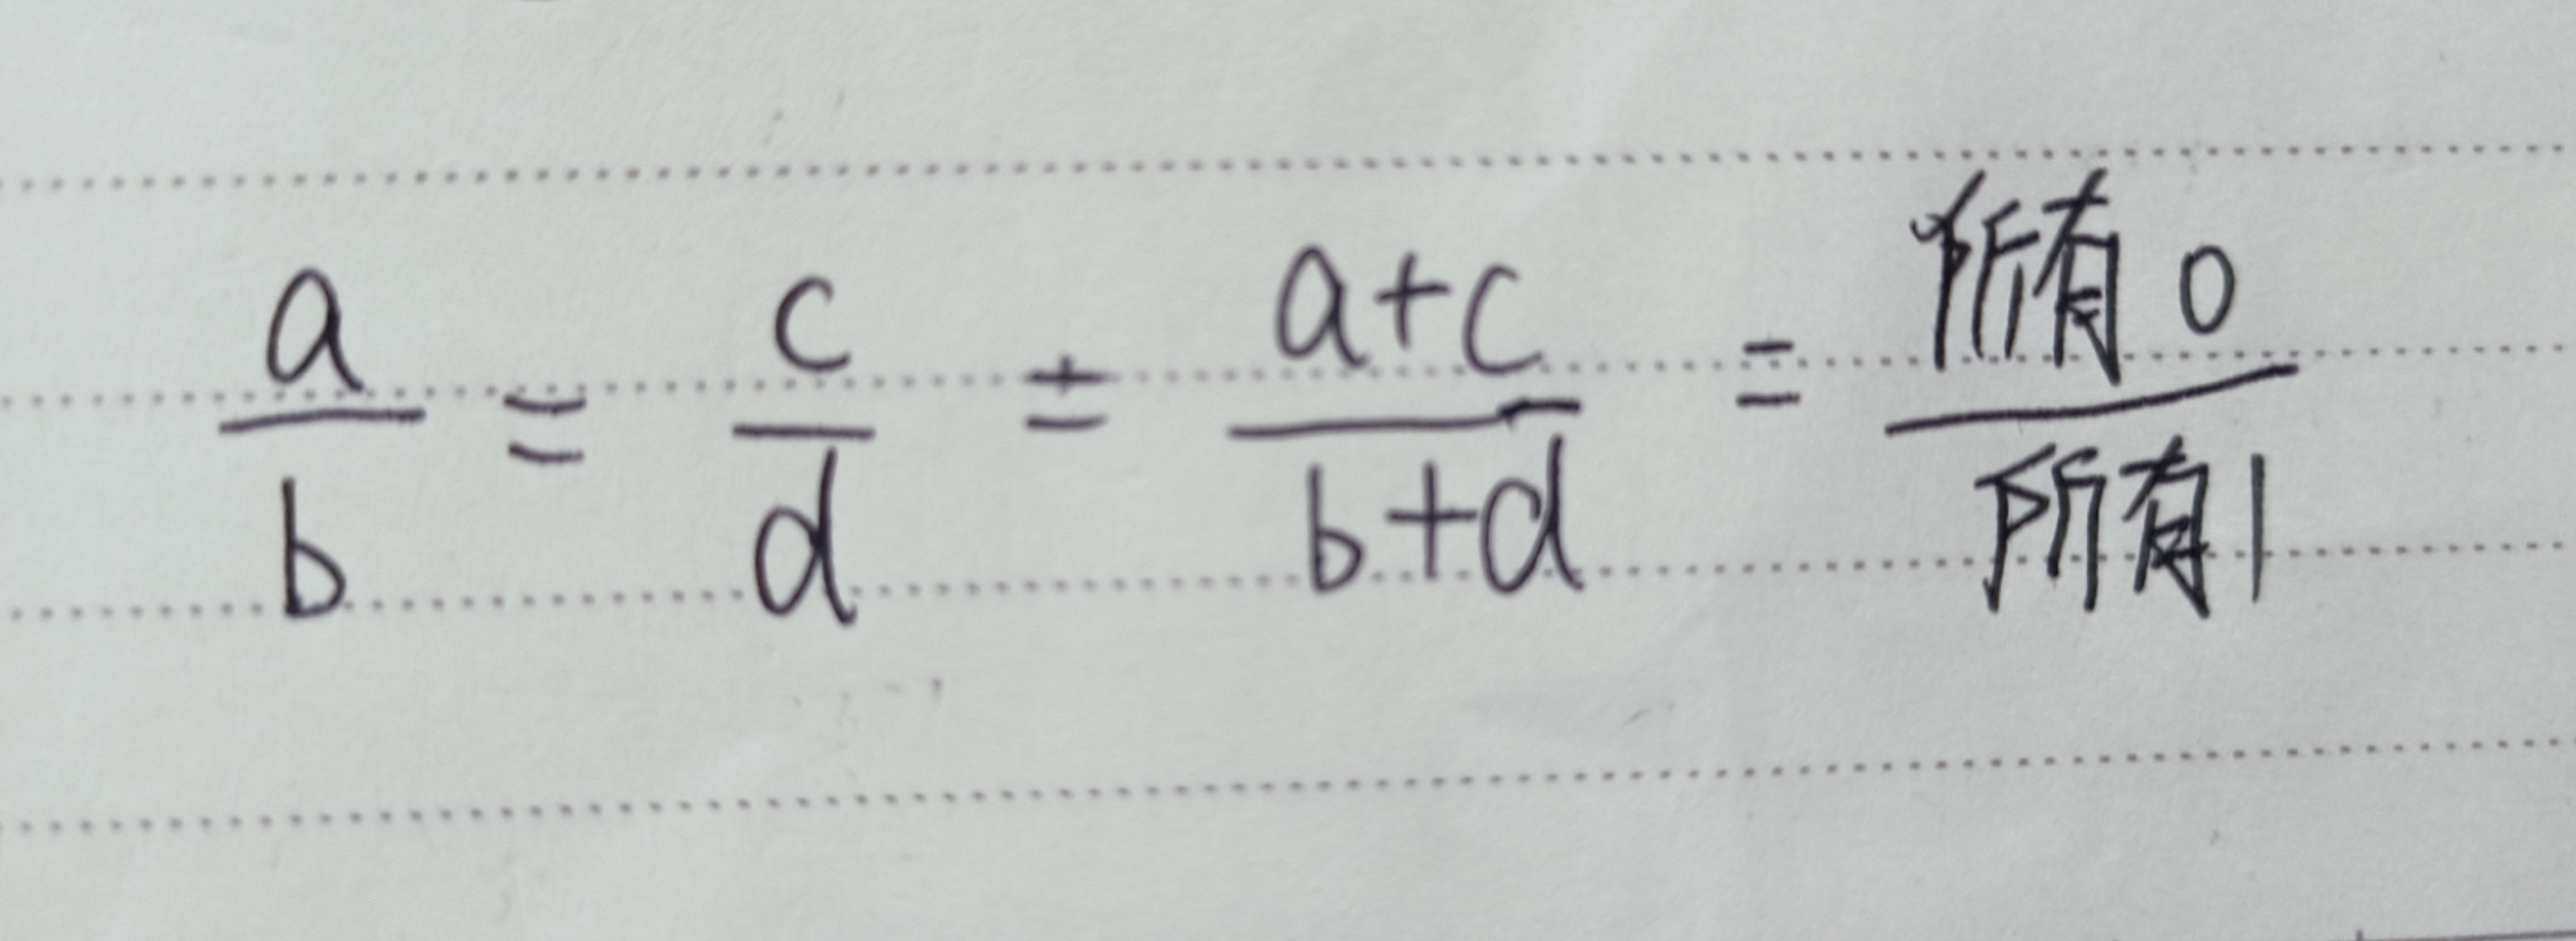 a/b = c/d = a+c/b+d = 所有0/所有1